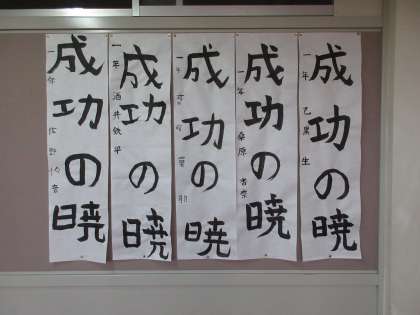 成功の暁
一年 乙黒 生
成功の暁
一年 桑原
成功の暁
一年
成功の暁
一年 酒井鉄平
成功の暁
一年 佐野